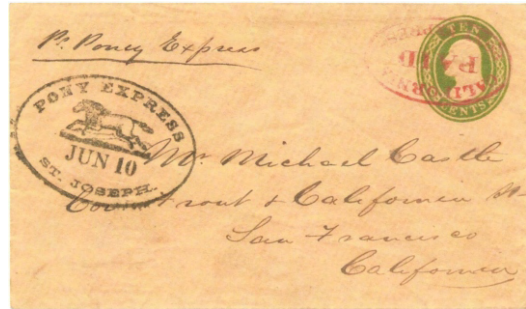 Pr Poney Express
TEN
CENTS
PAID
PONY EXPRESS
JUN 10
ST. JOSEPH.
Mr Michael Castle
Front & Californea St
San Francisco
Californea